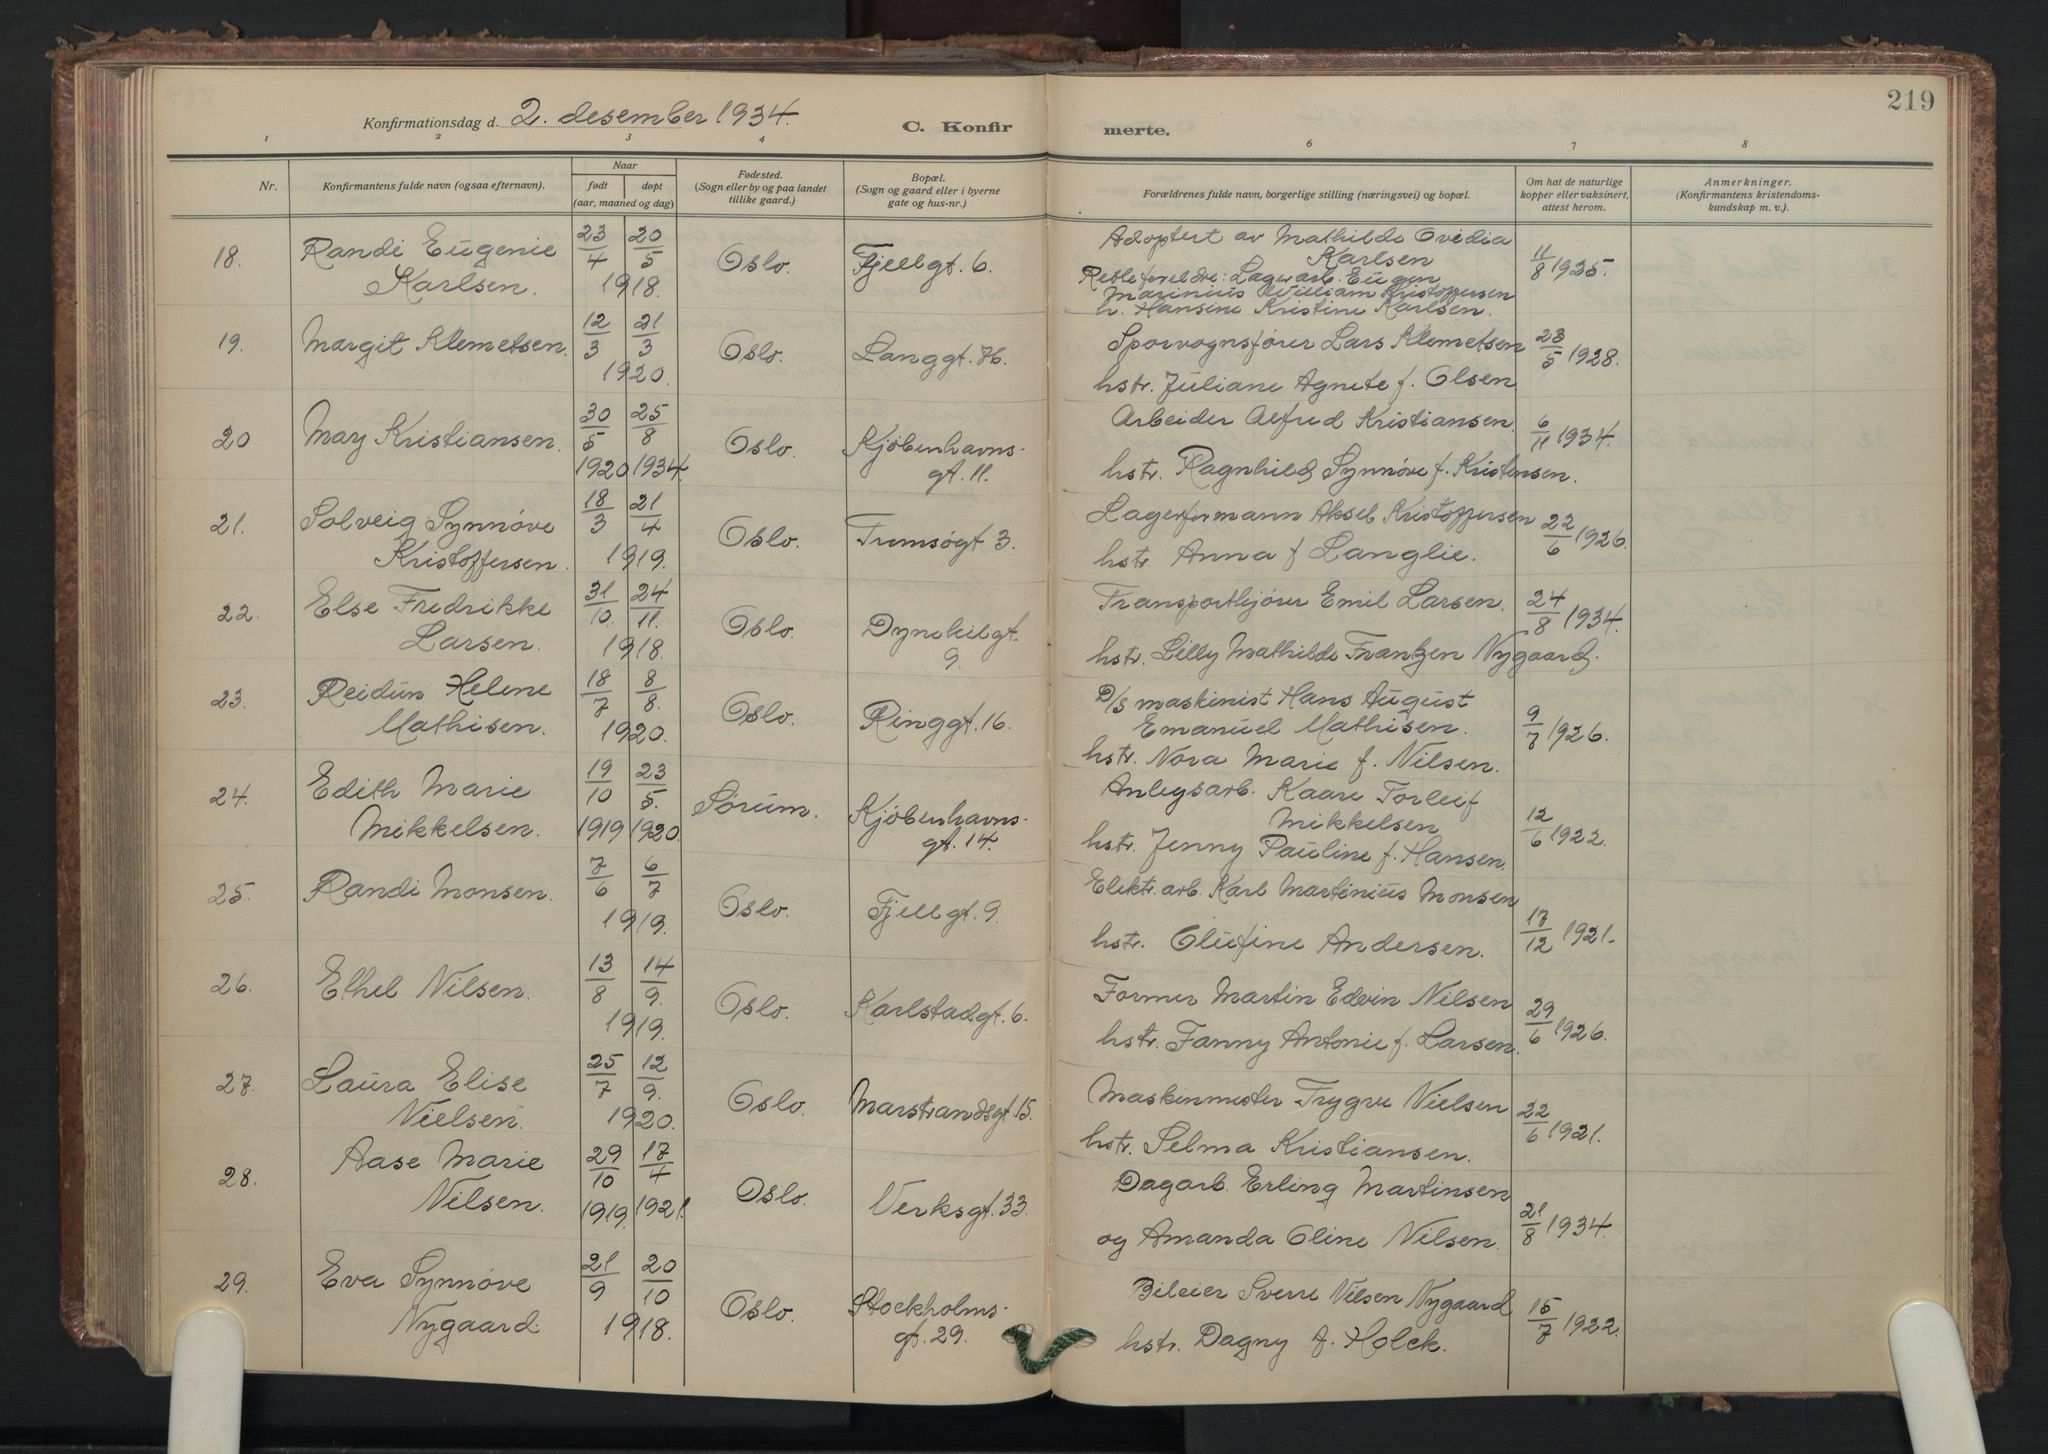 219
Konfirmationsdag d. 2. desember 1934.
C. Konfir
merte.
1 2 3 4 6 7 8
Nr.
Konfirmantens fulde navn (ogsaa efternavn).
Naar
født døpt
(aar, maaned og dag)
Fødested.
(Sogn eller by og paa landet
tillike gaard.)
Bopæl.
(Sogn og gaard eller i byerne
gate og hus-nr.)
Forældrenes fulde navn, borgerlige stilling (næringsvei) og bopæl.
Om hat de naturlige
kopper eller vaksinert,
attest herom.
Anmerkninger.
(Konfirmantens kristendoms-
kundskap m. v.).
18. Randi Eugenie
Karlsen.
23/4 20/5
1918.
Oslo. Fjellgt. 6.
Adoptert av Mathilde Ovedia
Karlsen
Lagerarb. Eugen
Marinius William Kristoffersen
h. Hansine Kristine Karlsen.
11/8 1925.
19. Margit Klemetsen.
12/3 21/3
1920.
Oslo. Langgt. 76.
Sporvognsfører Lars Klemetsen
hstr. Juliane Agnete f. Olsen
23/5 1928.
20 May Kristiansen.
30/5 25/8
1920 1934.
Oslo. Kjøbenhavns-
gt. 11.
Arbeider Alfred Kristiansen.
hstr. Ragnhild Synnøve f. Kristensen.
6/11 1934.
21. Solveig Synnøve
Kristoffersen.
18/3 21/4
1919.
Oslo. Tromsøgt 3.
Lagerformann Aksel Kristoffersen
hstr. Anna f Langlie.
22/6 1926.
22. Else Fredrikke
Larsen.
31/10. 24/11.
1918.
Oslo. Dynekilgt.
9.
Transportkjører Emil Larsen.
hstr. Lilly Mathilde Frantzen Nygaard.
24/8 1934.
23. Reidun Helene
Mathisen.
18/7 8/8.
1920.
Oslo. Ringgt. 16.
D/s maskinist Hans August
Emanuel Mathisen.
hstr. Nora Marie f. Nilsen.
9/7 1926.
24. Edith Marie
Mikkelsen.
19/10 23/5.
1919 1920.
Sørum. Kjøbenhavns-
gt. 14.
Anlegsarb. Kaare Torleif
Mikkelsen
hstr. Jenny Pauline f. Hansen.
12/6 1922.
25. Randi Monsen.
7/6 6/7
1919.
Oslo. Fjellgt. 9.
Elektr. arb. Karl Martinius Monsen
hstr. Olufine Andersen.
17/12 1921.
26. Ethel Nilsen.
13/8 14/9.
1919.
Oslo. Karlstadgt. 6.
Former Martin Edvin Nilsen
hstr. Fanny Antonie f. Larsen.
29/6 1926.
27. Laura Elise
Nielsen.
25/7 12/9.
1920.
Oslo. Marstrandsgt. 15.
Maskinmester Trygve Nielsen
hstr. Selma Kristiansen.
22/6 1921.
28. Aase Marie
Nilsen.
29/10 17/4
1919. 1921.
Oslo. Verksgt. 33.
Dagarb. Erling Martinsen
og Amanda Oline Nilsen.
21/8 1934.
29. Eva Synnøve
Nygaard.
21/9 20/10
1918.
Oslo. Stockholms-
gt. 29.
Bileier Sverre Nilsen Nygaard
hstr. Dagny f. Holck.
15/7 1922.